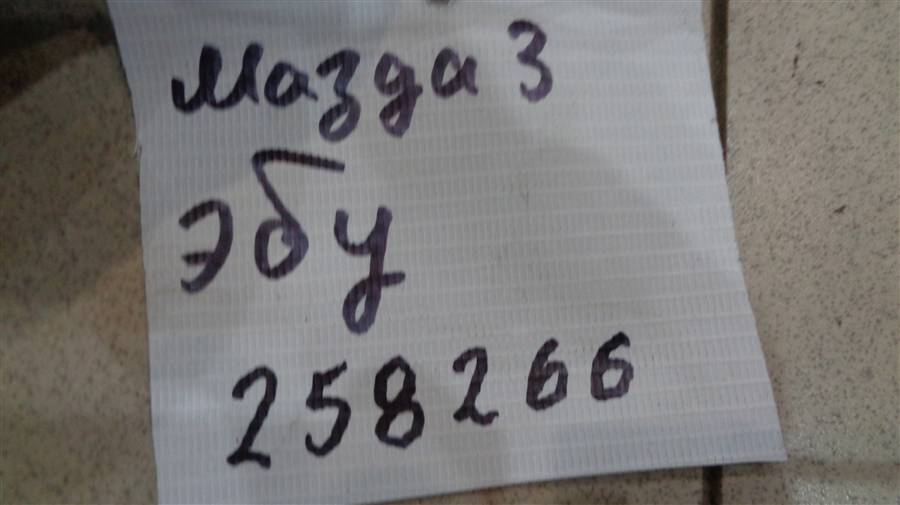 Мазда 3
эбу
258266